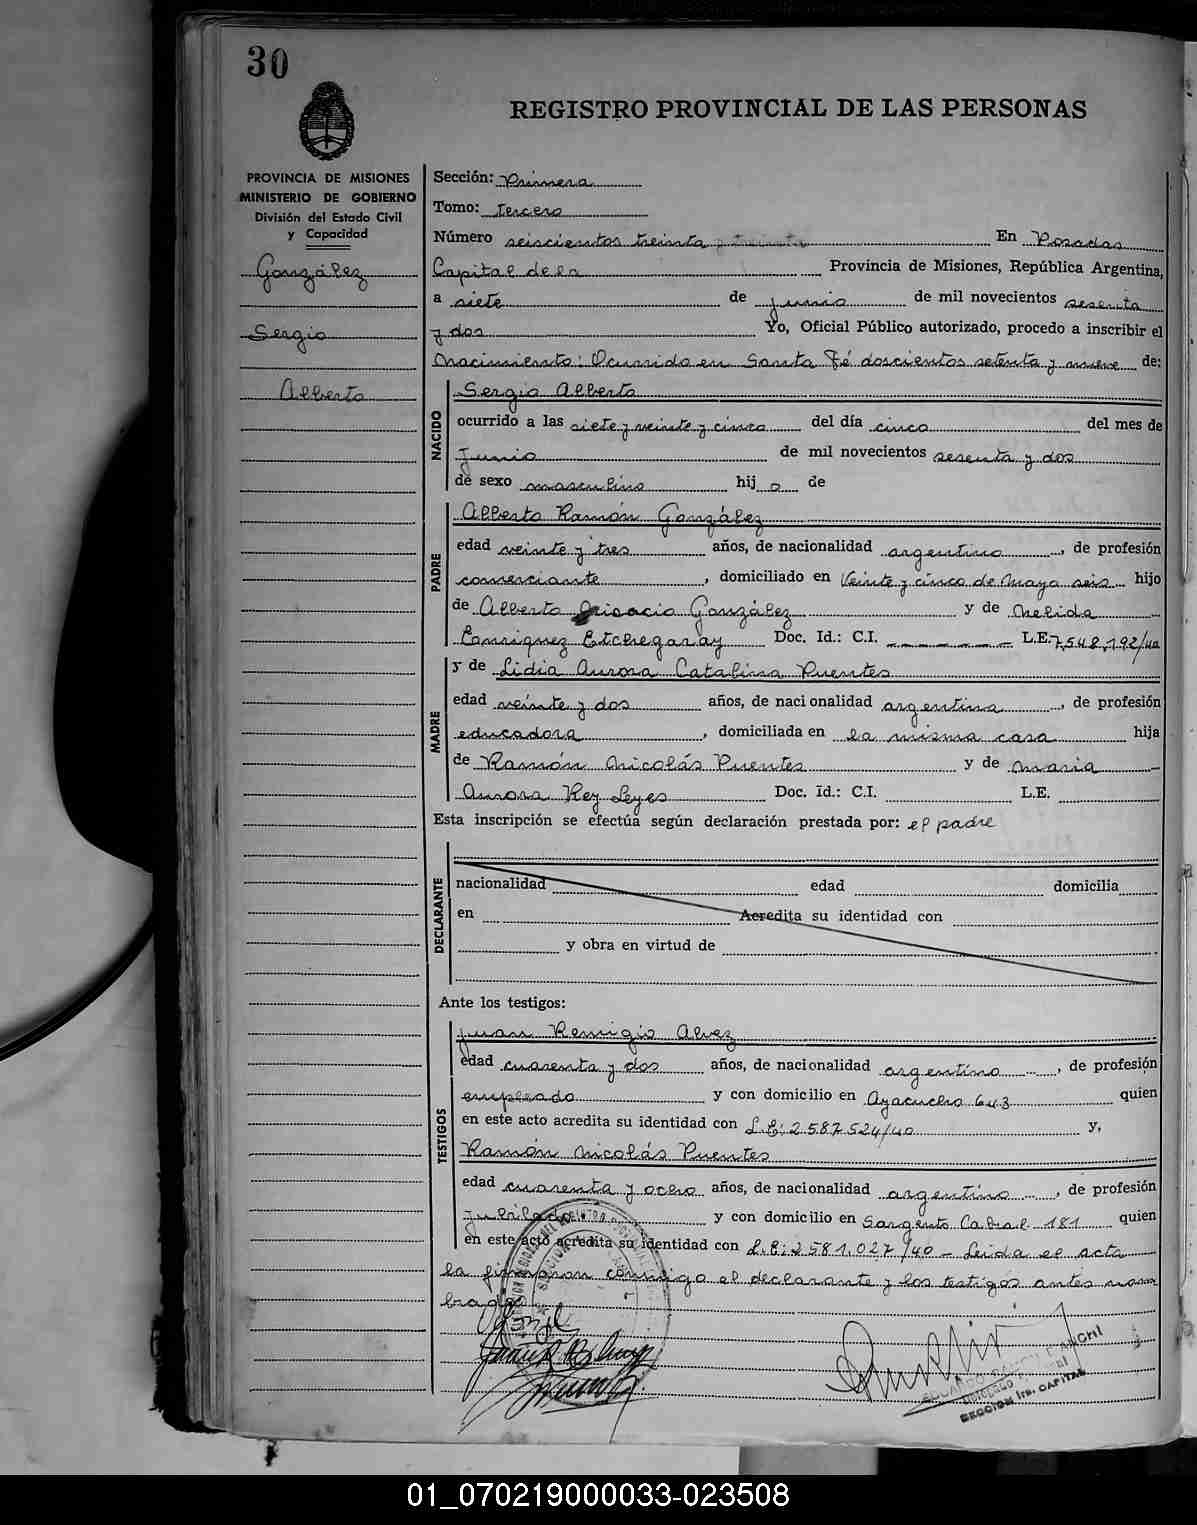 30
REGISTRO PROVINCIAL DE LAS PERSONAS
PROVINCIA DE MISIONES
MINISTERIO DE GOBIERNO
División del Estado Civil
y Capacidad
González
Sergio
Alberto
Sección: Primera
Tomo: tercero
Número seiscientos treinta En Posadas
Capital de la Provincia de Misiones, República Argentina,
a siete de junio de mil novecientos sesenta
y dos Yo, Oficial Público autorizado, procedo a inscribir el
nacimiento: Ocurrido en Santa Fé doscientos setenta y nueve de:
NACIDO
Sergio Alberto
ocurrido a las siete y veinte y cinco del día cinco del mes de
Junio de mil novecientos sesenta y dos
de sexo masculino hij o de
PADRE
Alberto Ramón González
edad veinte y tres años, de nacionalidad argentino, de profesión
comerciante, domiciliado en Veinte y cinco de Mayo seis hijo
de Alberto González y de Nelida
Enriquez Etchegaray Doc. Id.: C.I. L.E. 7.548.192/40
MADRE
y de Lidia Aurora Catalina Puentes
edad veinte y dos años, de nacionalidad argentina, de profesión
educadora, domiciliada en la misma casa hija
de Ramón Nicolás Puentes y de María
Aurora Rey Leyes Doc. Id.: C.I. L.E.
Esta inscripción se efectúa según declaración prestada por: el padre
DECLARANTE
nacionalidad edad domicilia
en Acredita su identidad con
y obra en virtud de
Ante los testigos:
TESTIGOS
Juan Remigio Alvez
edad cuarenta y dos años, de nacionalidad argentino, de profesión
empleado y con domicilio en Ayacucho 643 quien
en este acto acredita su identidad con L.E: 2.587.524/40 y,
Ramón Nicolás Puentes
edad cuarenta y ocho años, de nacionalidad argentino, de profesión
jubilado y con domicilio en Sargento Cabral 181 quien
en este acto acredita su identidad con L.E: 2.581.027/40 - Leida el acta
la firmaran conmigo el declarante y los testigos antes nom
brados
EDUARDO
SECCION 1ra. CAPITAL
01_070219000033-023508